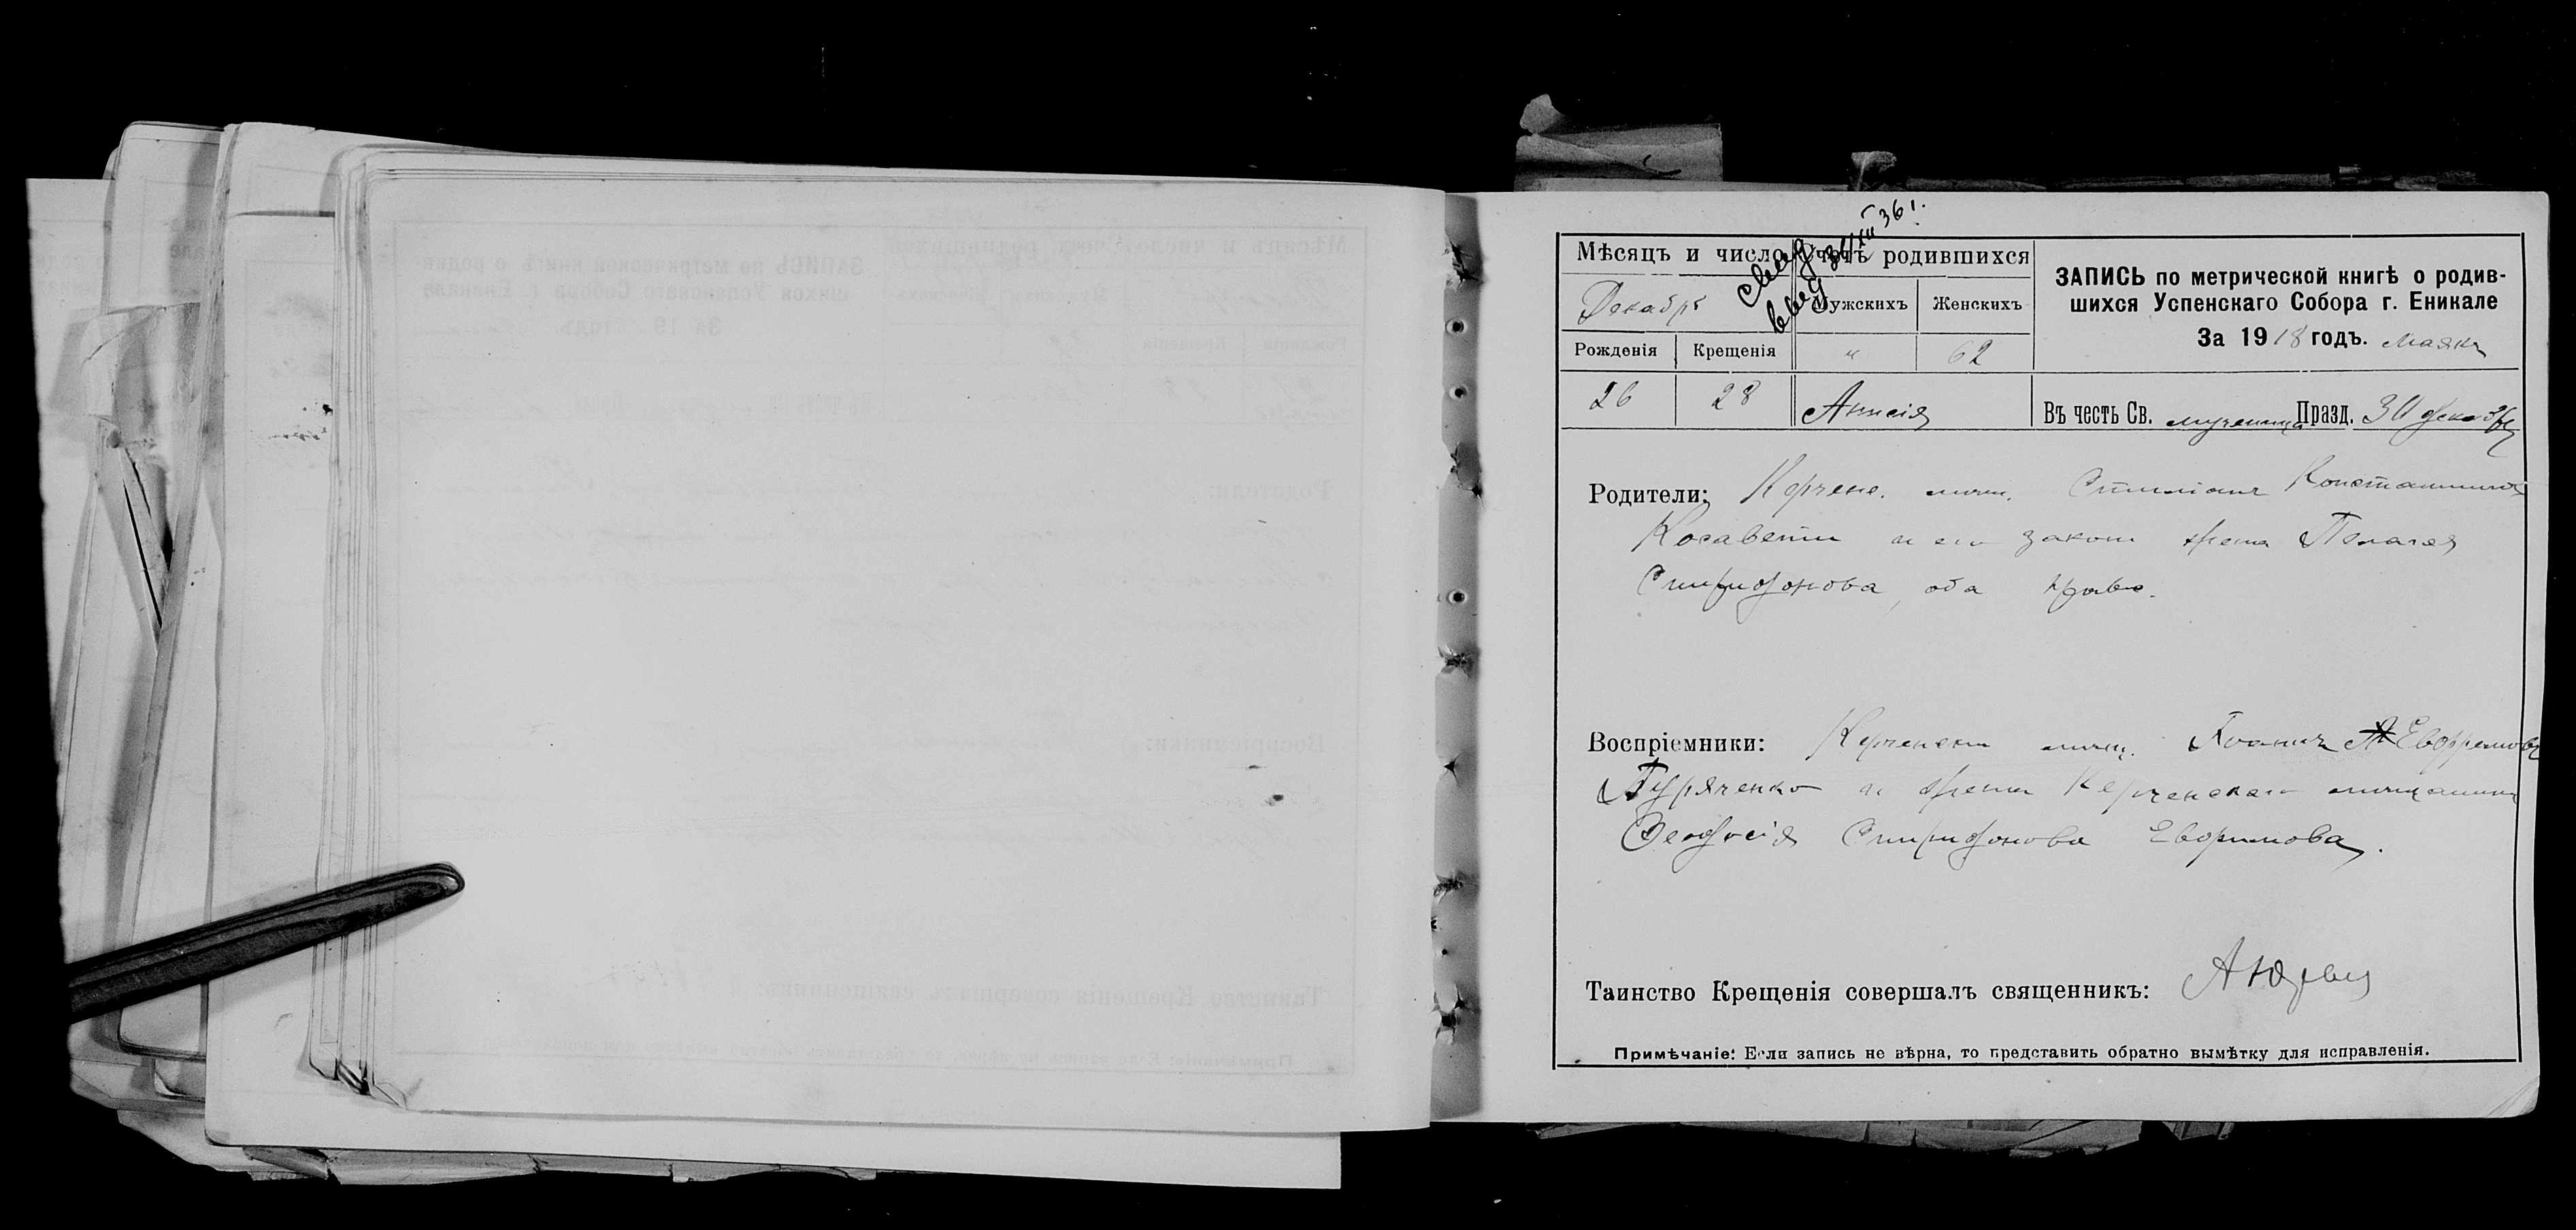 свид. выд 31/XII 36 г.
Мѣсяцъ и число Счетъ родившихся
Декабрь Мужскихъ Женскихъ
Рожденія Крещенія " 62
ЗАПИСЬ по метрической книгѣ о родив-
шихся Успенскаго Собора г. Еникале
За 1918 годъ. Маякъ
26 28 Анисія Въ честь Св. мученица Празд. 30 декабря
Родители: Керченс. мѣщ. Стиліанъ Константиновъ
Косавети и его закон жена Пелагея
Спиридонова, оба право.
Воспріемники: Керченскій мѣщ. Іоаннъ Евфремовъ
Пуряченко и жена Керченскаго мѣщанина
Ѳеодосія Спиридонова Евфимова.
Таинство Крещенія совершалъ священникъ: А Юрьевъ
Примѣчаніе: Если запись не вѣрна, то представить обратно вымѣтку для исправленія.